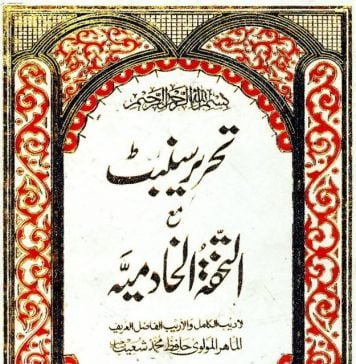 بسم الله الرحمن الرحيم
تحریر سنبٹ
مع
التحفة الخادمیه
لادیب الکامل والاریب الفاضل العریف
الماهر المولوی حافظ محمد شعیب